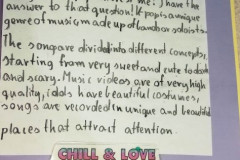 answer to that question! K pop is a unique
genre of music made up of band or soloists.
The song are divided into different concepts,
starting from very sweet and cute to dark
and scary. Music videos are of very high
quality, idols have beautiful costumes,
songs are recorded in unique and beautiful
places that attract attention.
CHILL & LOVE